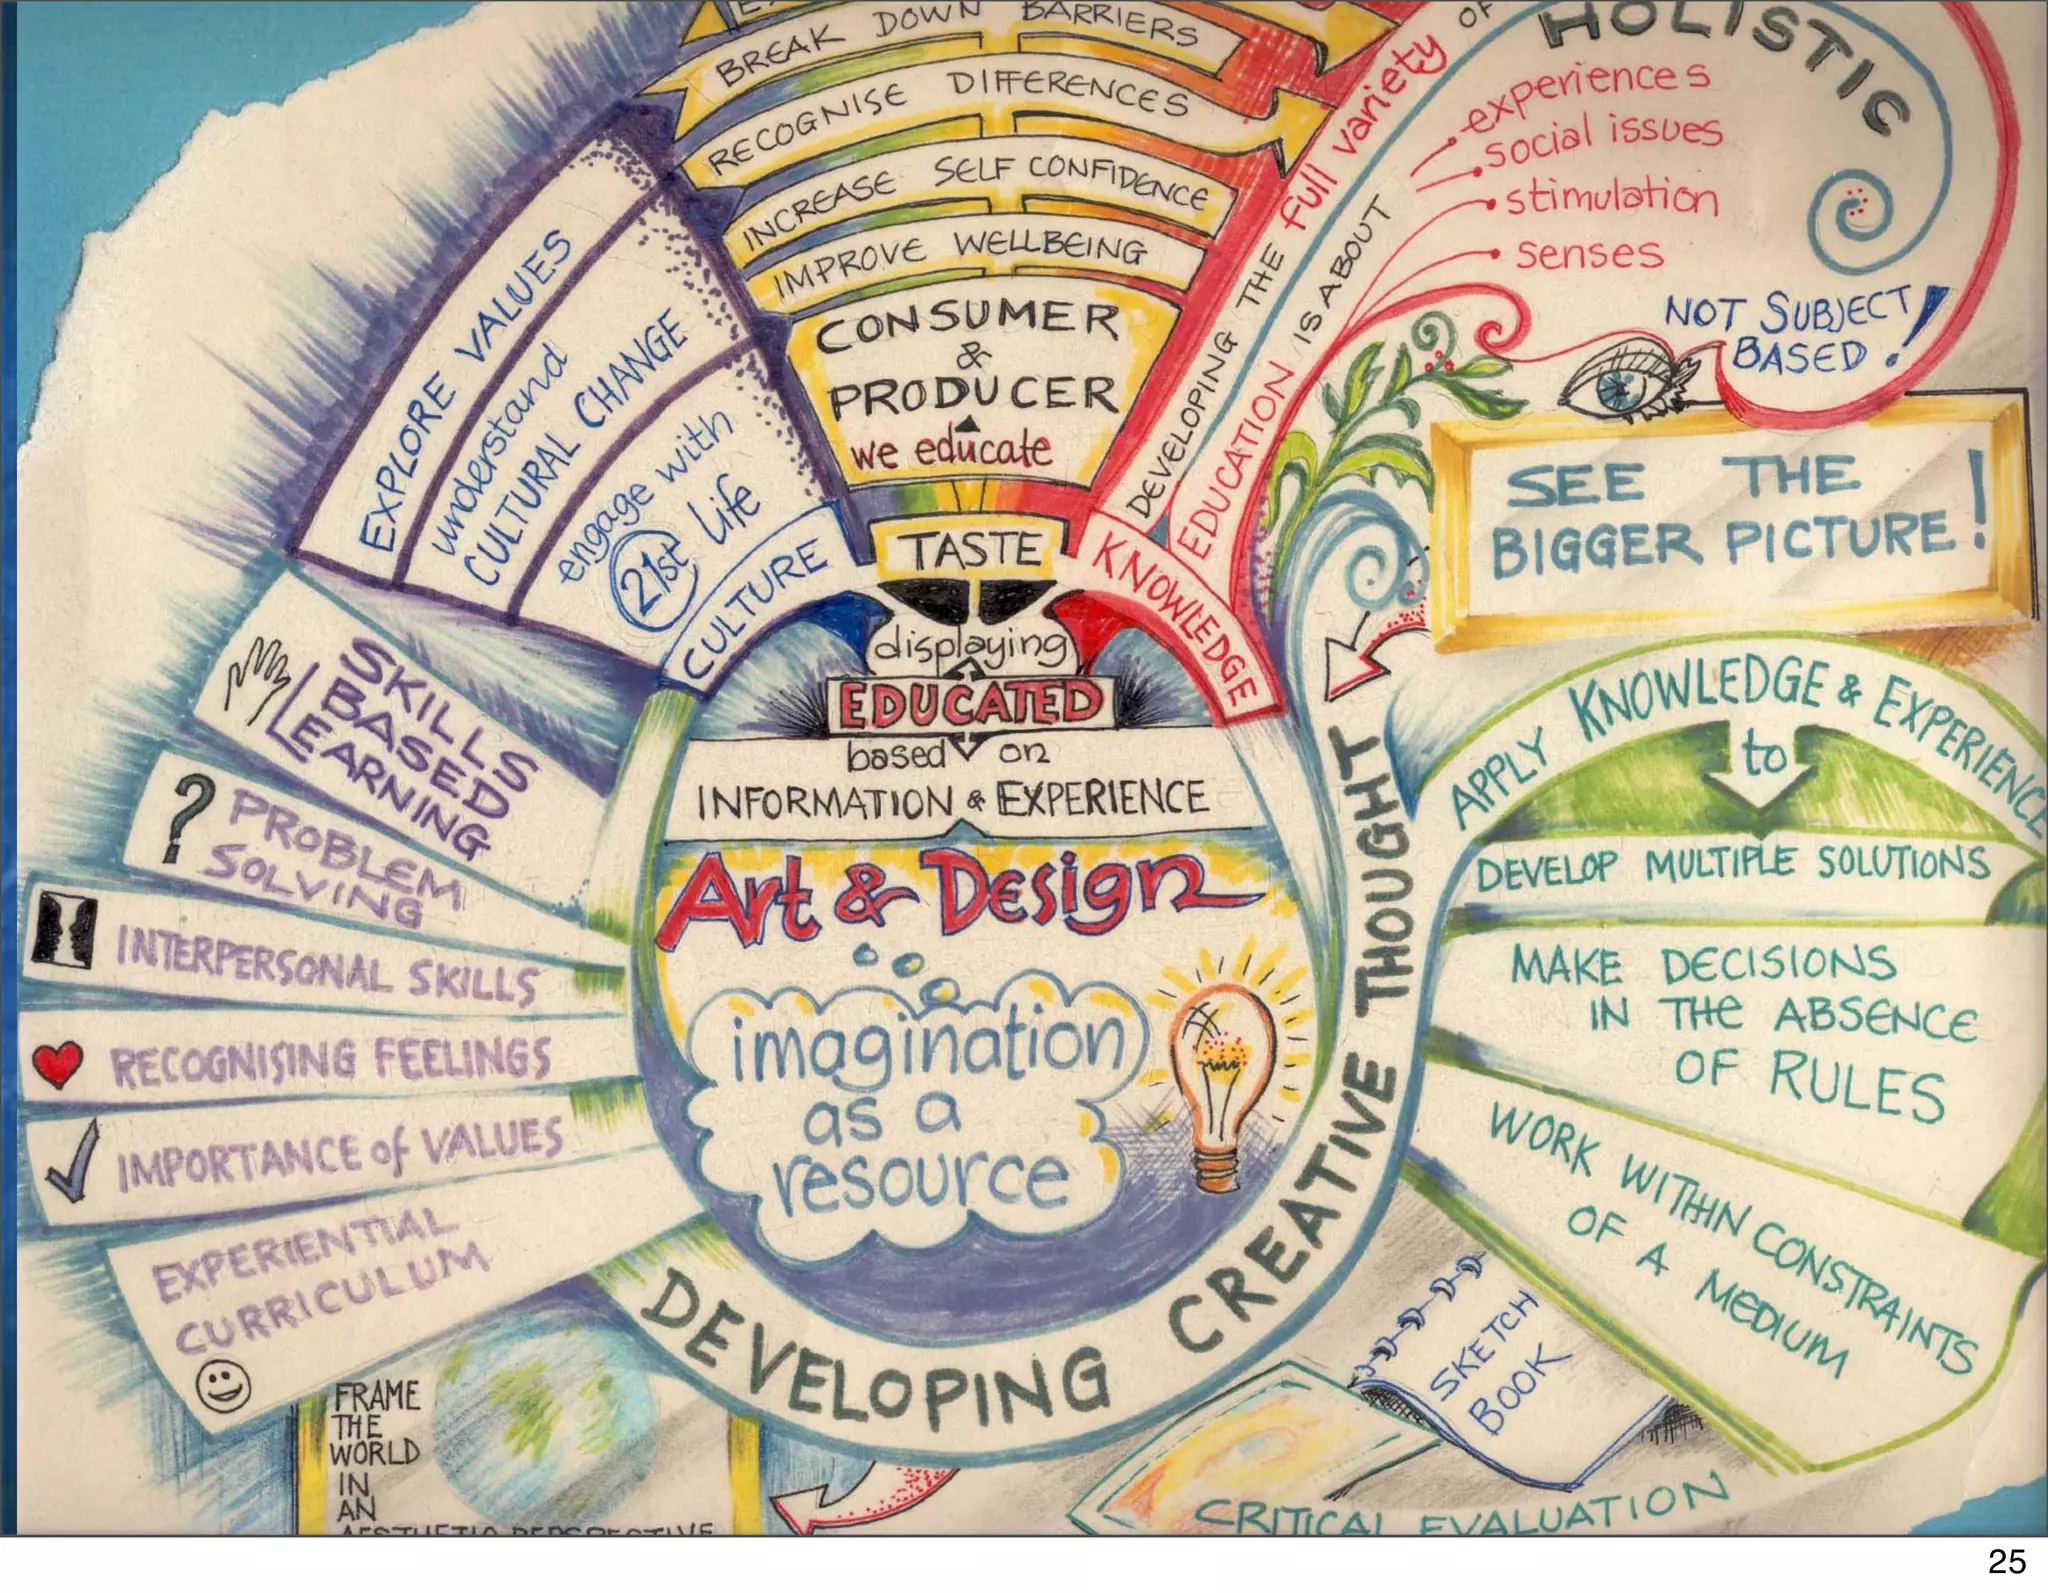 BREAK DOWN BARRIERS
RECOGNISE DIFFERENCES
INCREASE SELF CONFIDENCE
IMPROVE WELLBEING
CONSUMER
&
PRODUCER
we educate
TASTE
displaying
EDUCATED
based on
INFORMATION & EXPERIENCE
Art & Design
imagination
as a
resource
EXPLORE VALUES
understand
CULTURAL CHANGE
engage with
21st life
CULTURE
KNOWLEDGE
DEVELOPING THE full variety OF
EDUCATION IS ABOUT
HOLISTIC
experiences
social issues
stimulation
senses
NOT SUBJECT
BASED!
SEE THE
BIGGER PICTURE!
SKILLS
BASED
LEARNING
PROBLEM
SOLVING
INTERPERSONAL SKILLS
RECOGNISING FEELINGS
IMPORTANCE of VALUES
EXPERIENTIAL
CURRICULUM
DEVELOPING CREATIVE THOUGHT
APPLY KNOWLEDGE & EXPERIENCE
to
DEVELOP MULTIPLE SOLUTIONS
MAKE DECISIONS
IN THE ABSENCE
OF RULES
WORK WITHIN CONSTRAINTS
OF A MEDIUM
SKETCH
BOOK
CRITICAL EVALUATION
FRAME
THE
WORLD
IN
AN
AESTHETIC PERSPECTIVE
25